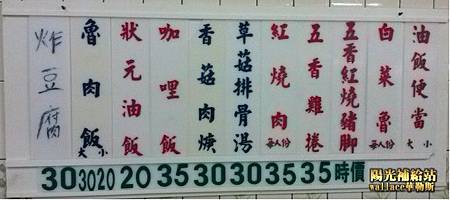 油飯便當 大 小
白菜魯 每人份
五香紅燒豬腳
五香雞捲
紅燒肉 每人份
草菇排骨湯
香菇肉焿
咖哩飯
狀元油飯
魯肉飯 大 小
炸豆腐
30 30 20 20 35 30 30 35 35 時價
陽光補給站
wallace華勒斯